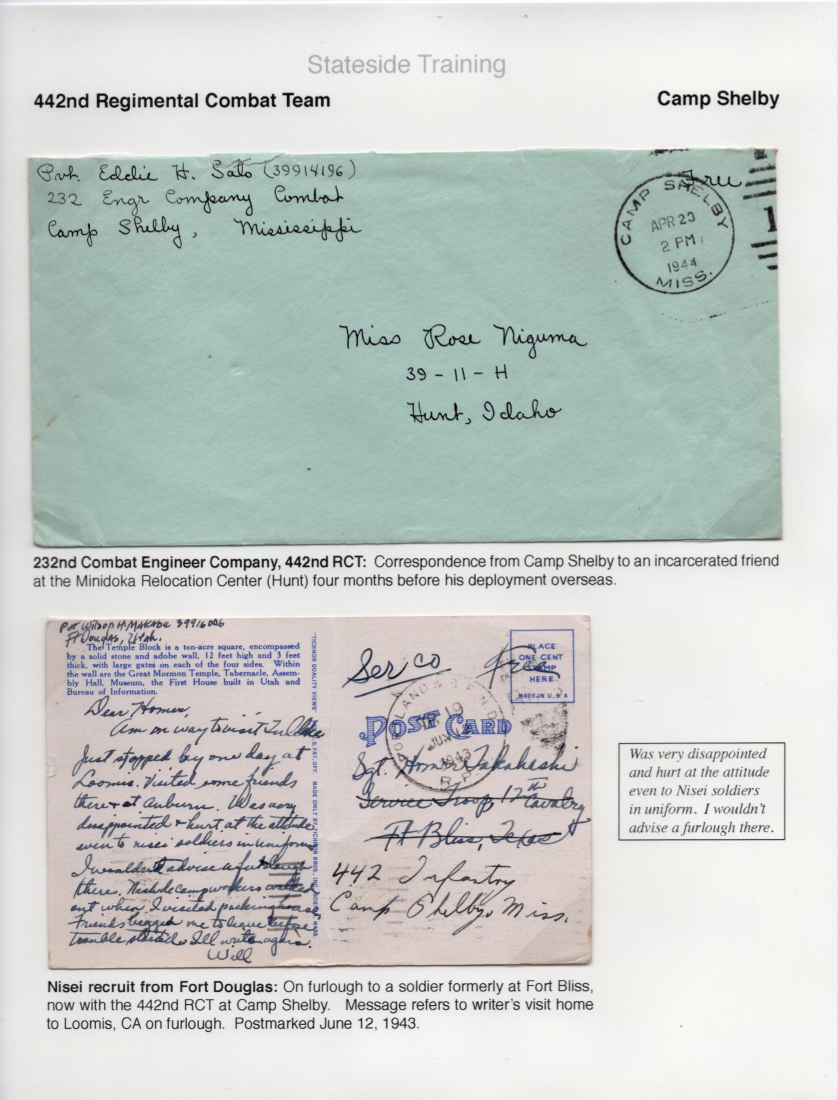 Stateside Training
442nd Regimental Combat Team
Camp Shelby
Pvt. Eddie H. Sato (39914196)
232 Engr Company Combat
Camp Shelby, Mississippi
Free
CAMP SHELBY
APR 23
2 PM
1944
MISS.
1
Miss Rose Niguma
39-11-H
Hunt, Idaho
232nd Combat Engineer Company, 442nd RCT: Correspondence from Camp Shelby to an incarcerated friend
at the Minidoka Relocation Center (Hunt) four months before his deployment overseas.
Pvt Wilson H. Makabe 39916006
Ft Douglas, Utah.
The Temple Block is a ten-acre square, encompassed
by a solid stone and adobe wall, 12 feet high and 3 feet
thick, with large gates on each of the four sides. Within
the wall are the Great Mormon Temple, Tabernacle, Assem-
bly Hall, Museum, the First House built in Utah and
Bureau of Information.
Dear Homer,
Am on way to visit
Just stopped by one day at
Loomis. Visited some friends
there & at Auburn. Was very
disappointed & hurt at the attitude
even to nisei soldiers in uniform
I wouldn't advise a furlough
there. camp workers walked
out when I visited packing house
Friends begged me to leave before
trouble started. I'll write again.
Will
Ser Co
Free
PLACE
ONE CENT
STAMP
HERE
MADE IN U.S.A
POST CARD
JUN
1943
R.P.O.
Sgt. Homer Takahashi
Service Troop, 12th Cavalry
Ft Bliss, Texas
442 Infantry
Camp Shelby, Miss.
Was very disappointed
and hurt at the attitude
even to Nisei soldiers
in uniform. I wouldn't
advise a furlough there.
Nisei recruit from Fort Douglas: On furlough to a soldier formerly at Fort Bliss,
now with the 442nd RCT at Camp Shelby. Message refers to writer's visit home
to Loomis, CA on furlough. Postmarked June 12, 1943.